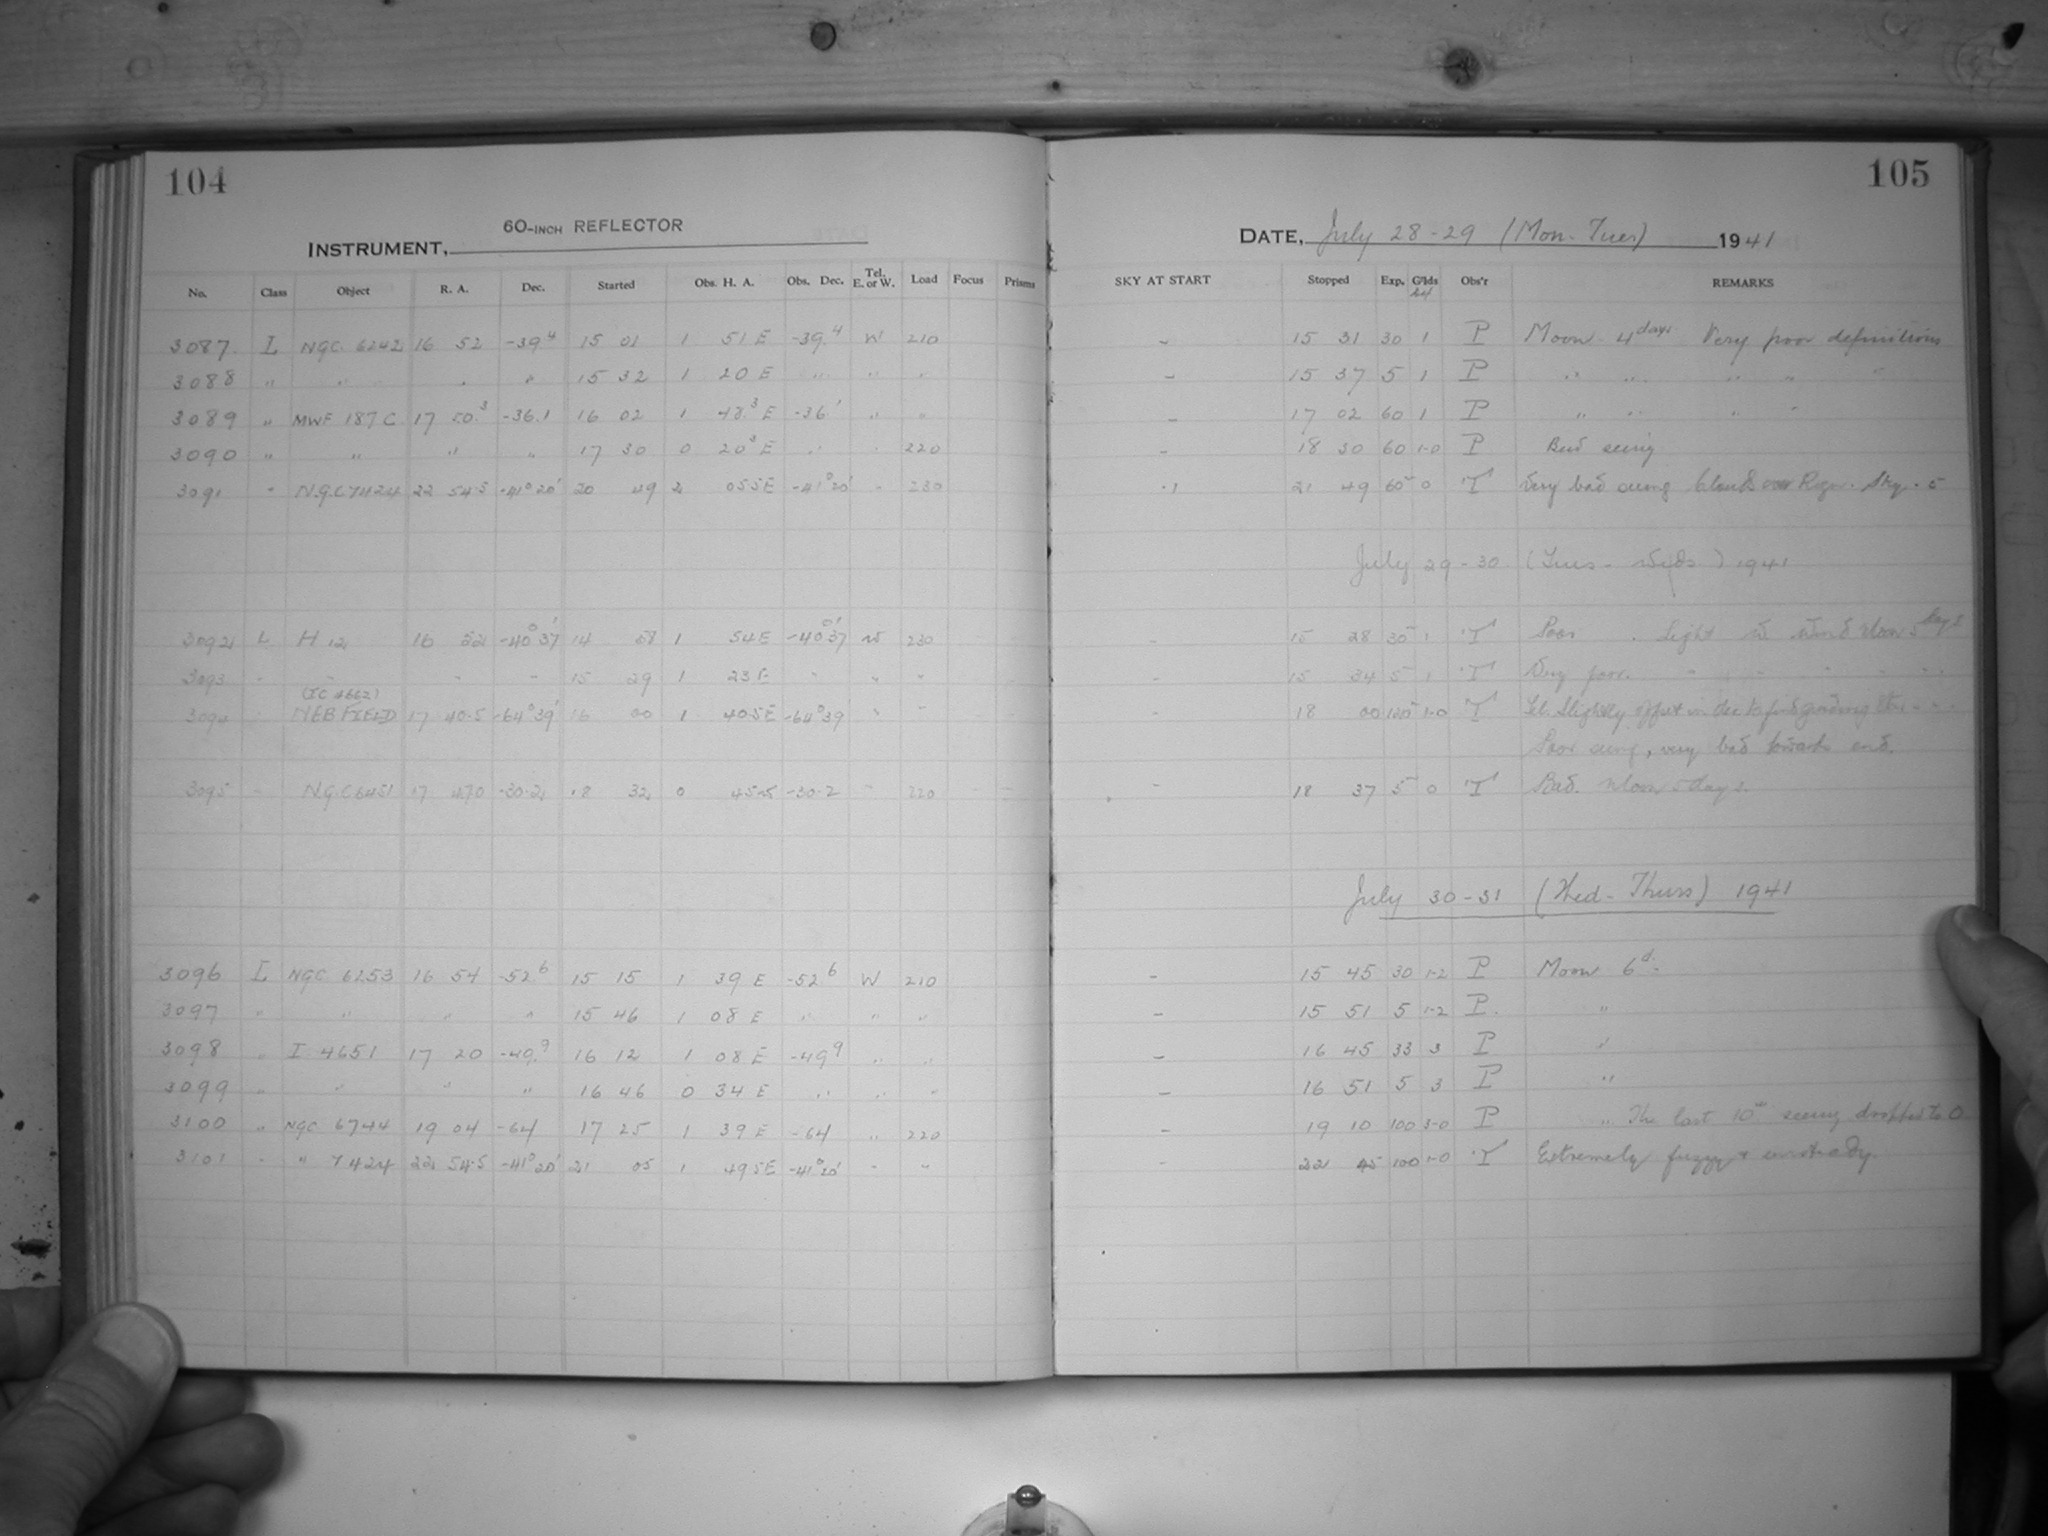 104
105
60-INCH REFLECTOR
INSTRUMENT,
DATE, July 28-29 (Mon-Tues) 1941
No. Class Object R. A. Dec. Started Obs. H. A. Obs. Dec. Tel. E. or W. Load Focus Prisms SKY AT START Stopped Exp. G'lds Obs'r REMARKS
3087 L NGC 6242 16 52 -39.4 15 01 1 51 E -39.4 W 210 - 15 31 30 1 P Moon 4 days Very poor definitions
3088 " " " " 15 32 1 20 E " " " - 15 37 5 1 P " " " " "
3089 " MWF 187 C 17 50.3 -36.1 16 02 1 48.3 E -36.1 " " - 17 02 60 1 P " " " "
3090 " " " " 17 30 0 20.3 E " " 220 - 18 30 60 1-0 P Bad seeing
3091 " N.G.C 7424 22 54.5 -41° 20' 20 49 2 05.5 E -41° 20' " 230 .1 21 49 60 0 T Very bad seeing Clouds over Sky . 5
July 29-30 (Tues - Weds) 1941
3092 L H 12 16 22 -40° 37' 14 58 1 54 E -40° 37' W 230 - 15 28 30 1 T Poor . Light W Wind Moon 5 days
3093 " " " " 15 29 1 23 E " " " - 15 34 5 1 T Very poor. " " " " "
(IC 4662)
3094 " NEB FIELD 17 40.5 -64° 39' 16 00 1 40.5 E -64° 39 " " 18 00 120 1-0 T Tel. Slightly offset in dec to find guiding star " "
Poor seeing, very bad towards end.
3095 " N.G.C 6451 17 47.0 -30.2 18 32 0 45.5 -30.2 " 220 - 18 37 5 0 T Bad. Moon 5 days.
July 30-31 (Wed-Thurs) 1941
3096 L NGC 6253 16 54 -52.6 15 15 1 39 E -52.6 W 210 - 15 45 30 1-2 P Moon 6d.
3097 " " " " 15 46 1 08 E " " " - 15 51 5 1-2 P. "
3098 " I 4651 17 20 -49.9 16 12 1 08 E -49.9 " " - 16 45 33 3 P "
3099 " " " " 16 46 0 34 E " " " - 16 51 5 3 P "
3100 " NGC 6744 19 04 -64 17 25 1 39 E -64 " 220 - 19 10 100 3-0 P " The last 10m seeing dropped to 0
3101 " " 7424 22 54.5 -41° 20' 21 05 1 49.5 E -41° 20' " " - 22 45 100 1-0 T Extremely fuzzy & unsteady.